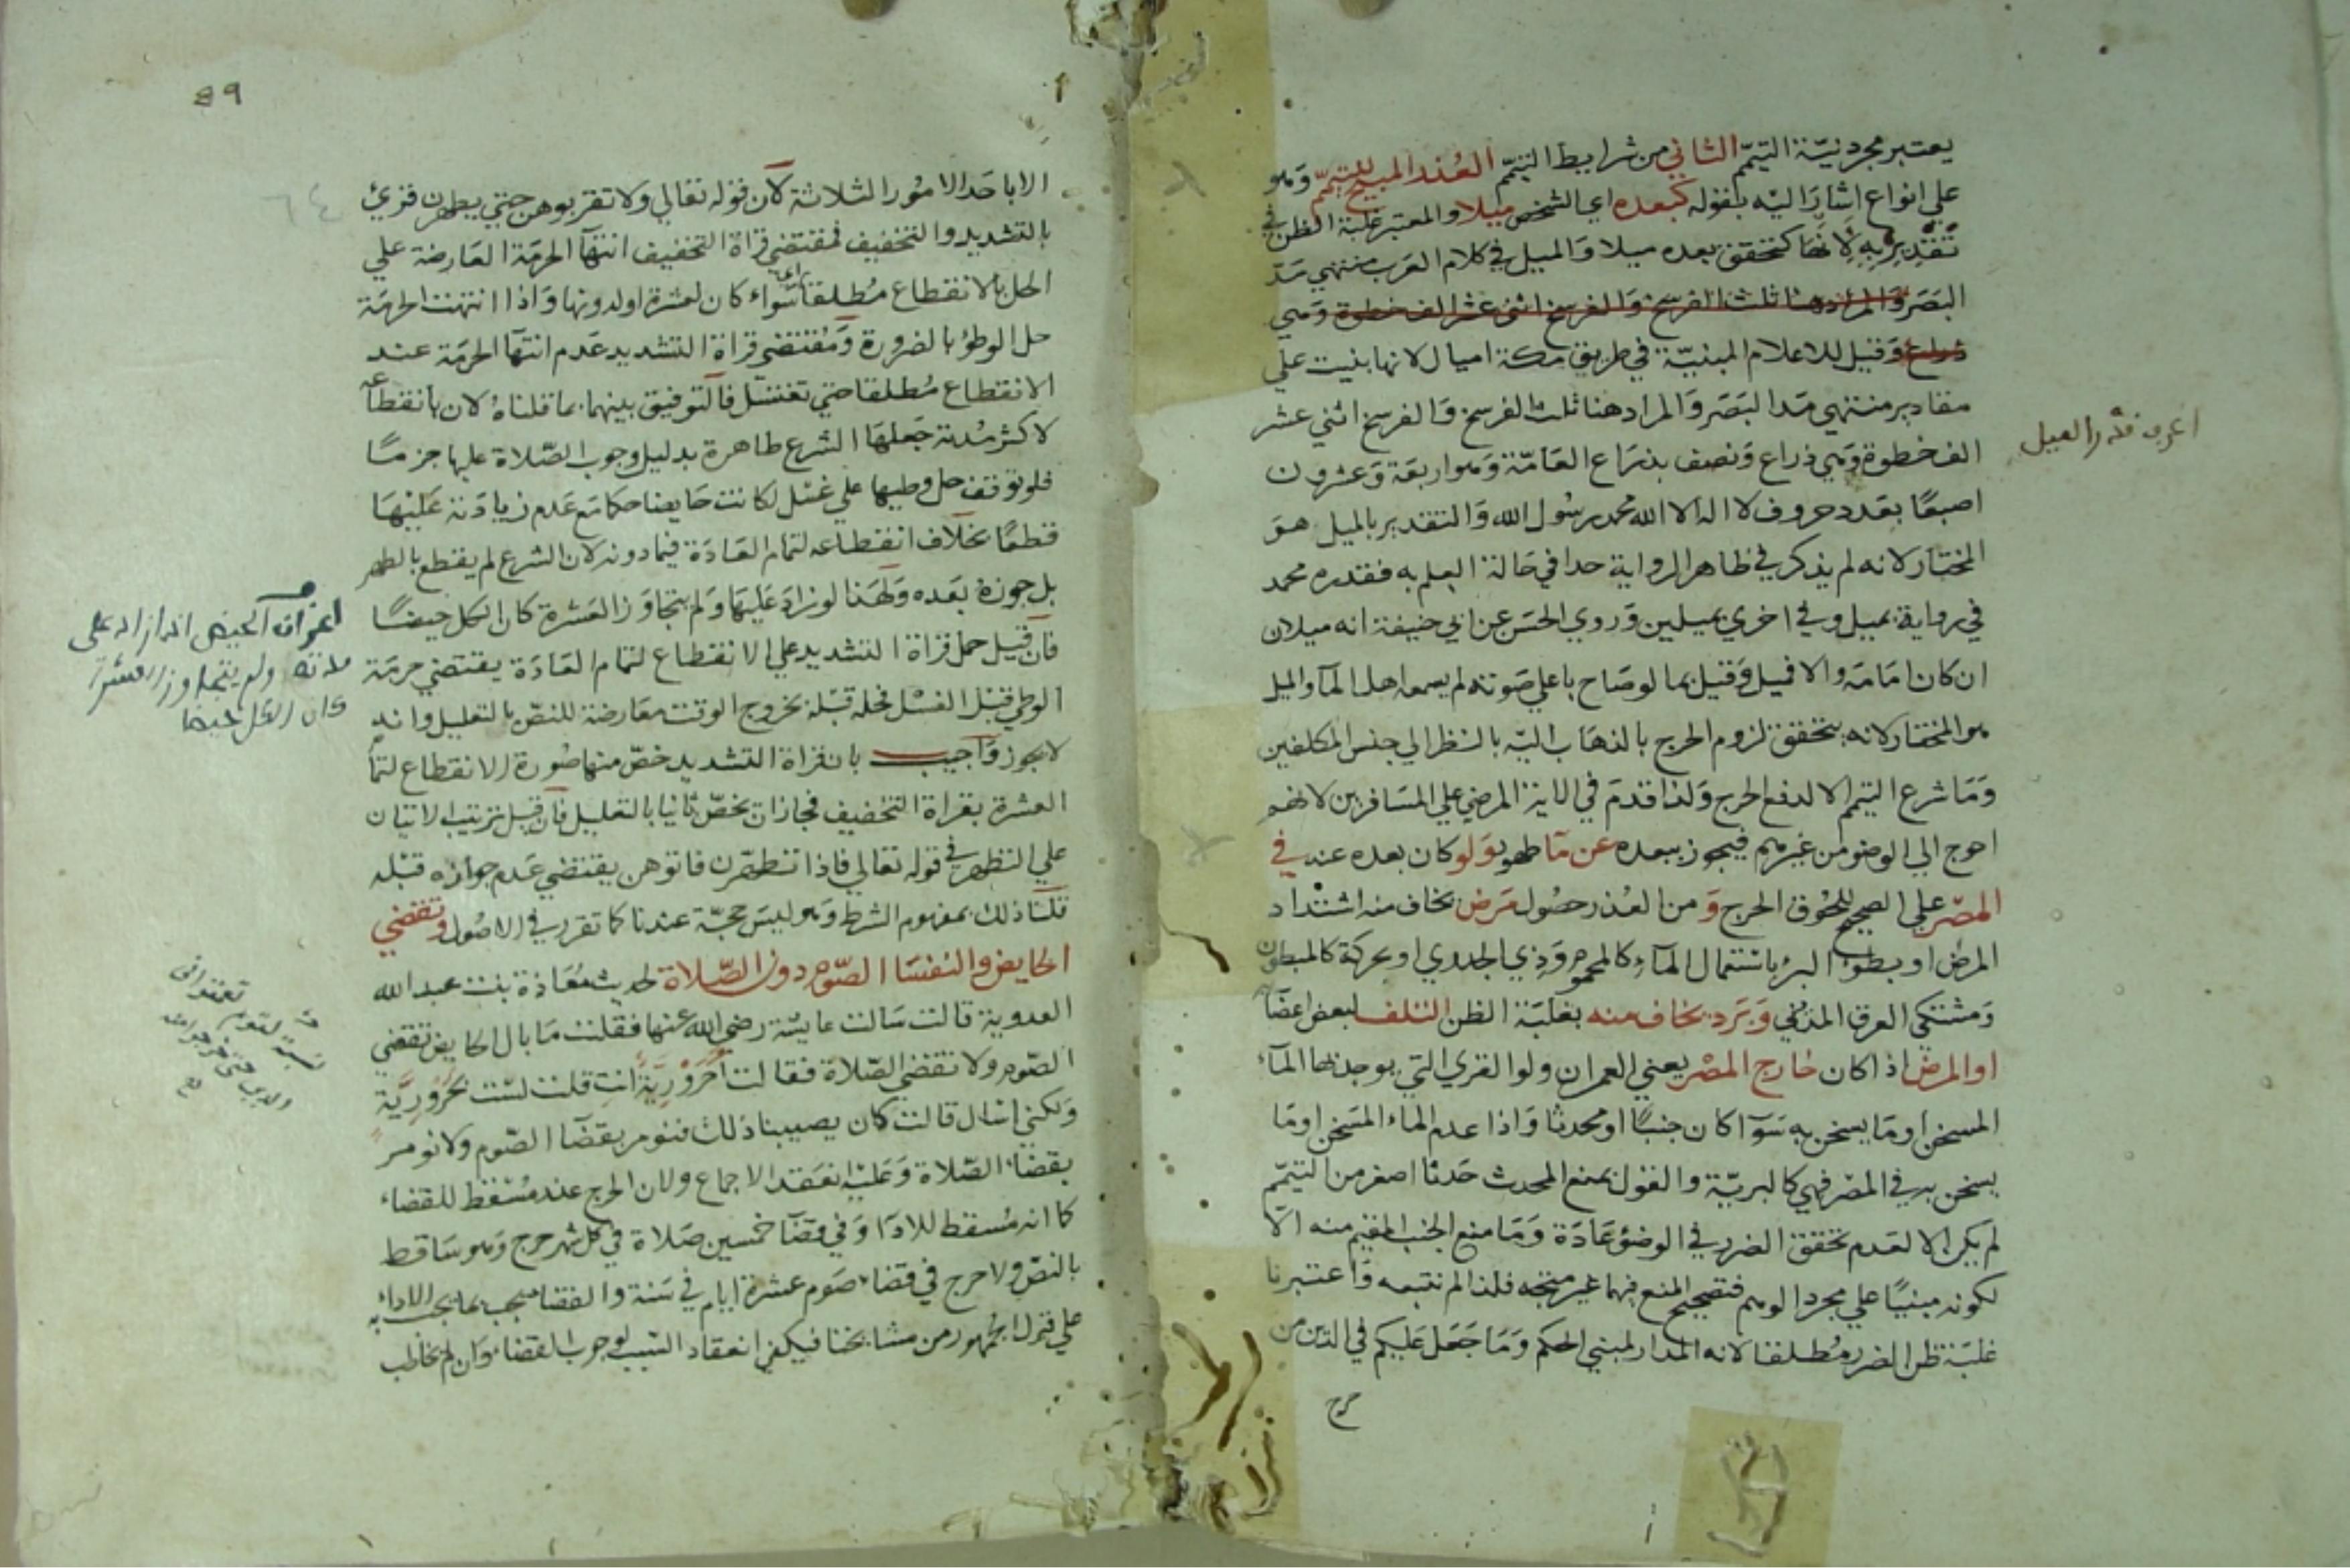 يعتبر مجرد نيّة التيمّم الثاني من شرايط التيمّم العُذر المبيح للتيمّم وَهو
علي انواع اشارَ اليْه بقوله كبعده اي الشخص ميلا والمعتبر غلبة الظن في
تقديره لانها كتحقق بعده ميلا وَالميل في كلام العَرب منتهي مَدّ
البَصَر وَالمراد هنا ثلث الفرسخ وَالفرسخ اثني عشر الف خطوة وَهي
ذراع وَقيل للاعلام المبنيّة في طريق مكة اميال لانها بنيت علي
مقادير منتهي مَدا البَصَر وَالمراد هنا ثلث الفرسخ وَالفرسخ اثني عشر
الف خطوة وَهي ذراع وَنصف بذرَاع العَامّة وَهو اربعَة وَعشرون
اصبعًا بعَدد حروف لا اله الا الله محمد رسُول الله وَالتقدير بالميل هوَ
المختار لانه لم يذكر في ظاهر الرواية حدا في حَالة العلم به فقدره محمد
في رواية بميل وفي اخري بميلين وَروي الحسَن عن ابي حنيفة انه ميلان
ان كان امَامَه والا فميل وَقيل بما لو صَاح باعلي صَوته لم يسمعه اهل المآ والميل
هو المختار لانه يتحقق لزوم الحرج بالذهَاب اليْه بالنظر الي جنس المكلفين
وَمَا شرع التيمم الا لدفع الحرج وَلذا قدمَ في الاية المرضي علي المسَافرين لانهم
احوج الي الوضو من غيرهم فيجوز ببعده عن مَآ طهور وَلو كان بعده عنه في
المصْر علي الصحيح للحُوق الحرج وَ من العُذر حصُول مَرَض يخاف منه اشتداد
المرض او بطؤ البرؤ باستعمال المآء كالمحموم وَذي الجدري او بحركة كالمبطون
وَمشتكي العرق المدني وَبَرد يخاف منه بغلبَة الظن التلف لبعض اعضآ
او المرض اذا كان خارج المصْر يعني العمران ولو القري التي يوجد بها المآء
المسخن او مَا يسخن به سَوآ كان جنبًا او محدثا وَاذا عدم الماء المسَخن او مَا
يسخن به في المصْر فهي كالبريّة والقول بمنع المحدث حَدثا اصغر من التيمّم
لم يكن الا لعَدم تحقق الضرر في الوضؤ عَادَة وَمَا منع الجنب المقيم منه الّا
لكونه مبنيًا علي مجرد الوهم فتصحيح المنع فيهما غير متجه فلذا لم نتبعه وَاعتبرنا
غلبَة ظن الضرر مُطلقا لانه المدار لمبني الحكم وَمَا جَعَل عَليكم في الدّين من
حرج
اعرف قدر الميل
89
٦٤
الا باحَد الامُور الثلاثة لآن قوله تعَالي ولا تقربوهن حتي يطهرن قرئ
بالتشديد والتخفيف فمقتضي قرآة التخفيف انتهآ الحرمَة العَارضة علي
الحل بالانقطاع مُطلقا سَواء كان لعشرة او لدونها وَاذا انتهت الحرمَة
حل الوطؤ بالضرورة وَمُقتضي قرآة التشديد عَدم انتهآ الحرمَة عند
الانقطاع مُطلقا حتي تغتسَل فالتوفيق بينهما بما قلناهُ لان بانقطاعه
لاكثر مُدته جَعلهَا الشرع طاهرة بدليل وجوب الصّلاة عليها جزمًا
فلو توقف حل وطيها علي غسْل لكانت حَايضا حكما مَع عَدم زيادَته عَليْهَا
قطعًا بخلآف انقطاعه لتمام العَادَة فيما دونه لان الشرع لم يقطع بالطهر
بل جوزهُ بعَده وَلهَذا لو زادَ عَليهَا وَلم يتجَاوَز العَشرة كان الكل حيضًا
فان قيل حمل قرآة التشديد علي الانقطاع لتمام العَادَة يقتضي حرمَة
الوطي قبْل الغسْل فحله قبْله بخروج الوقت مَعَارضة للنصّ بالتعليل وانه
لا يجوز وَآجيب بان قرآة التشديد خصّ منها صُورة الانقطاع لتما
العشرة بقرآة التخفيف فجاز ان يخصّ ثانيا بالتعليل فان قيل ترتيب الاتيان
علي التطهر في قوله تعالي فاذا تطهّرن فاتوهن يقتضي عَدم جوازه قبْله
قلنا ذلك بمفهوم الشرط وَهو ليسَ حجّة عندنا كما تقرر في الاصُول وتقضي
الحايض والنفسَا الصّوم دون الصّلاة لحديث مُعَاذة بنت عبد الله
العدوية قالت سَالت عايشة رضي الله عنها فقلت مَا بال الحايض تقضي
الصّوم ولا تقضي الصّلاة فقالت أحَرُوْرِيَّةٌ انتِ قلت لسْت بحَرُورِيَّة
وَلكني اسَال قالت كان يصيبنا ذلك فنومر بقضَآ الصّوم ولا نومر
بقضَاء الصّلاة وَعَليْه انعَقد الاجماع ولان الحرج عند مُسْقط للقضاء
كما انه مُسقط للادَآ وَفي قضَآ خمسين صَلاة في كل شهر حرج وَهو سَاقط
بالنصّ ولا حرج في قضاء صَوم عشرة ايام في سَنة والقضا يجب بما يجب الاداء به
علي قول الجمهور من مشايخنا فيكفي انعقاد السَبب لوجوب القضاء وَان لم يخاطب
اعرف ان الحيض اذا زاد علي
عادته ولم يتجاوز العشرة
كان الكل حيضا